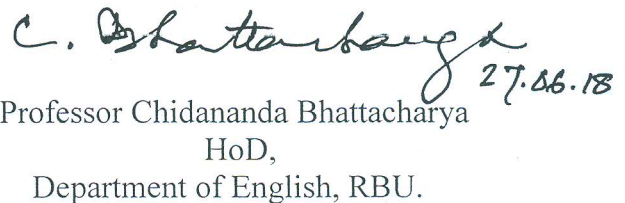 C. Bhattacharya
27.06.18
Professor Chidananda Bhattacharya
HoD,
Department of English, RBU.